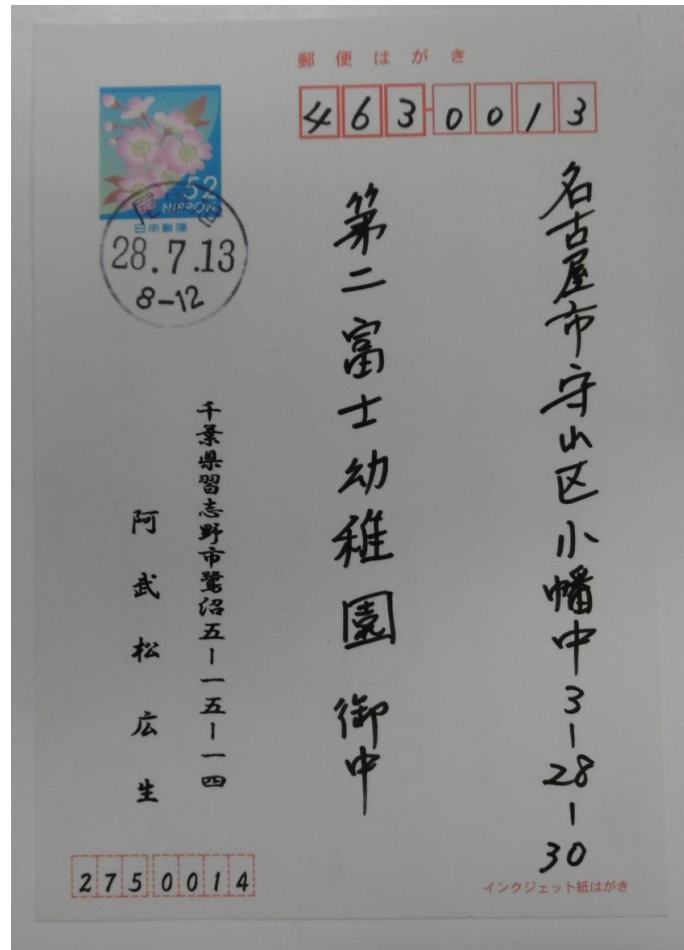 郵便はがき
4630013
名古屋市守山区小幡中3-28-30
第二富士幼稚園 御中
52
NIPPON
日本郵便
28.7.13
8-12
千葉県習志野市鷺沼五-一五-一四
阿武松広生
2750014
インクジェット紙はがき